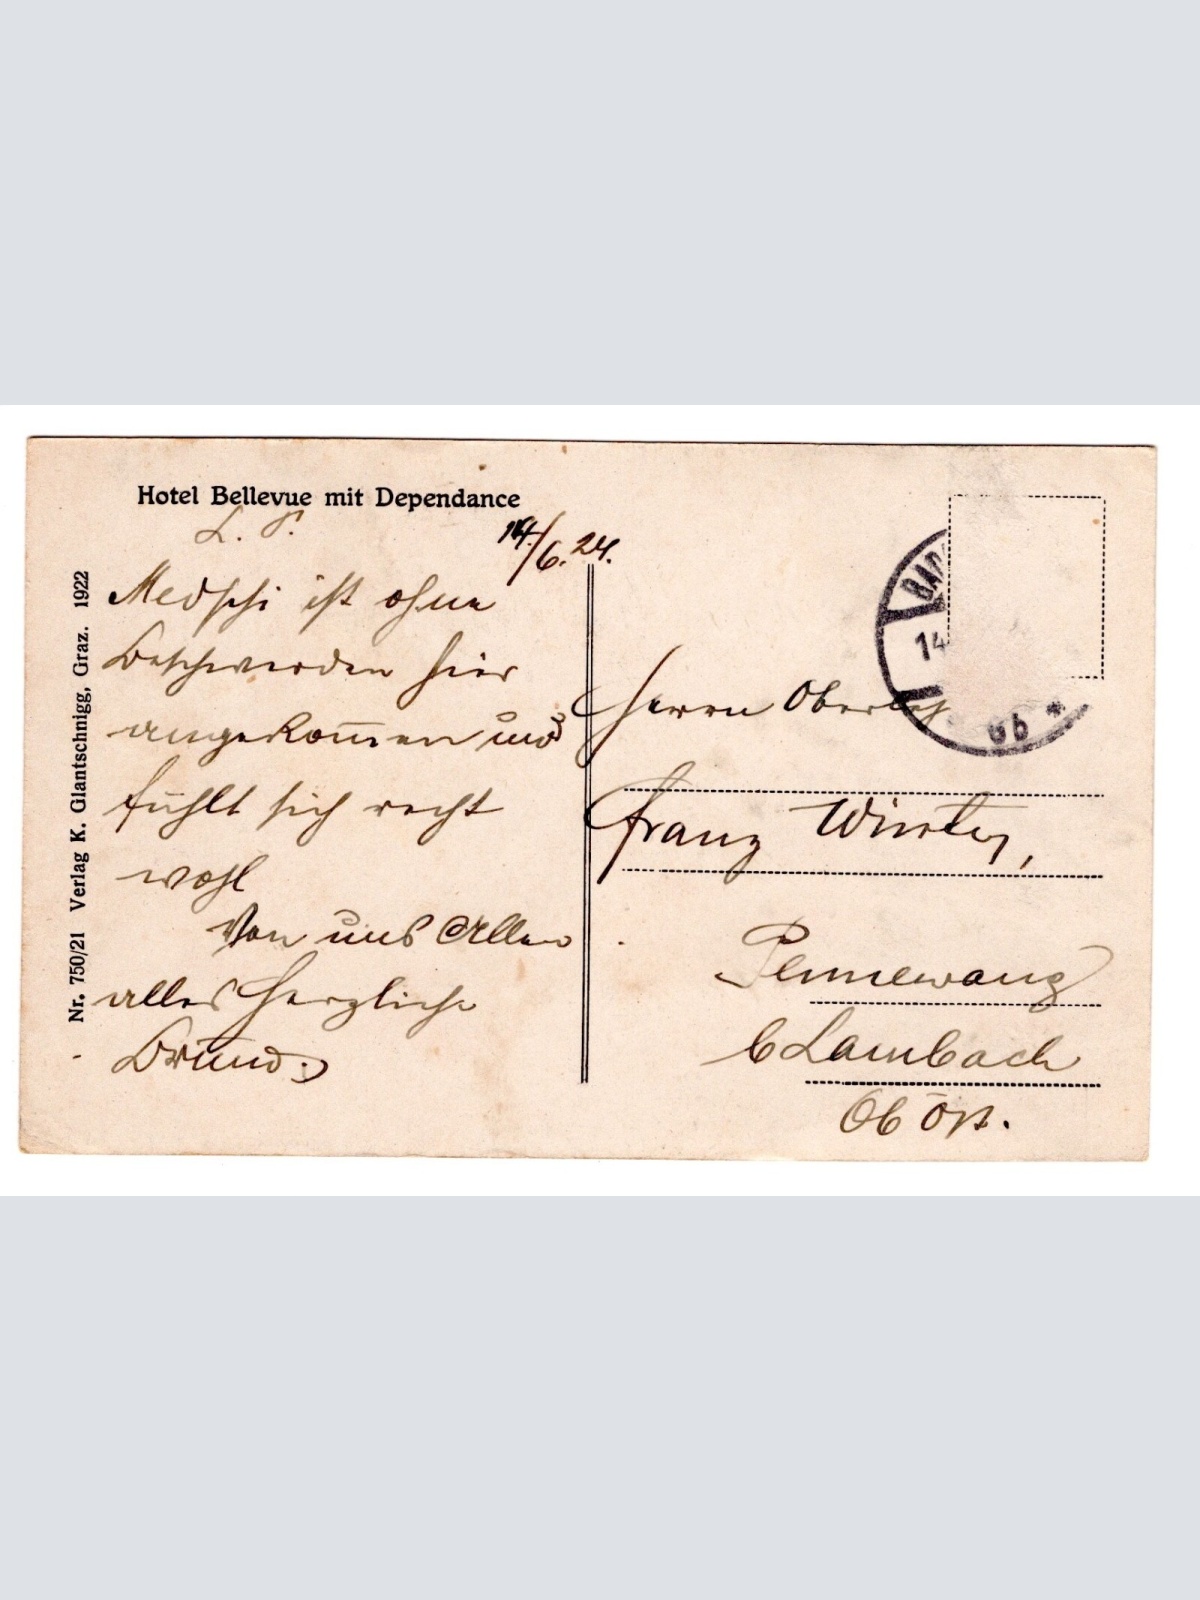 Hotel Bellevue mit Dependance
L. P.
14/6. 24.
ist ohne
Beschwerden hier
angekommen und
fühlt sich recht
wohl
Von uns Allen
alles Herzliche
Nr. 750/21 Verlag K. Glantschnigg, Graz. 1922
14
6b *
Herrn
Franz
Pennewang
b Lambach
Ob Öst.